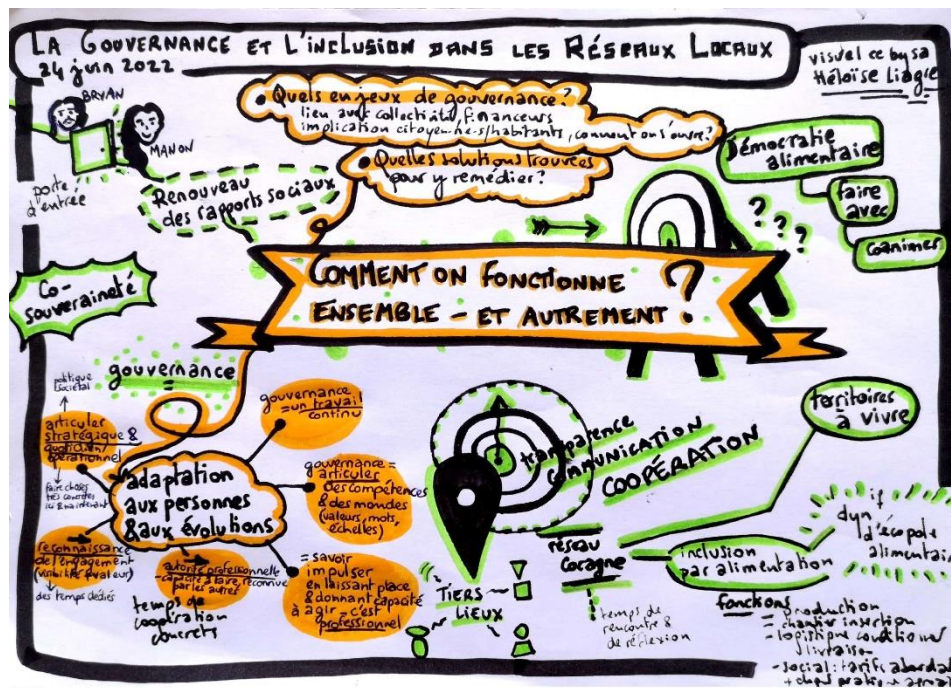 LA GOUVERNANCE ET L'INCLUSION DANS LES RÉSEAUX LOCAUX
24 juin 2022
visuel cc by sa
Héloïse Liagre
BRYAN
MANON
porte
d'entrée
Renouveau
des rapports sociaux
Quels enjeux de gouvernance?
lien avec collectivité, financeurs
implication citoyen·ne·s/habitants, comment on s'ouvre?
Quelles solutions trouvées
pour y remédier?
Démocratie
alimentaire
faire
avec
coanimer
? ? ?
Co-
souveraineté
COMMENT ON FONCTIONNE
ENSEMBLE - ET AUTREMENT ?
gouvernance
=
politique
sociétal
articuler
stratégique &
quotidien/
opérationnel
faire choses
très concrètes
ici & maintenant
gouvernance
= un travail
continu
adaptation
aux personnes
& aux évolutions
gouvernance =
articuler
des compétences
& des mondes
(valeurs, mots,
échelles)
reconnaissance
de l'engagement
(visibilité, valeur)
des temps dédiés
autorité professionnelle
= capacité à faire, reconnue
par les autres
temps de
coopération
concrets
= savoir
impulser
en laissant place
& donnant capacité
à agir = c'est
professionnel
transparence
communication
COOPÉRATION
TIERS
LIEUX
territoires
à vivre
réseau
Cocagne
temps de
rencontre &
de réflexion
inclusion
par alimentation
dyn
d'écopole
alimentai
fonctions
production
= chantier insertion
= logistique
livraison
- social: tarifs aborda